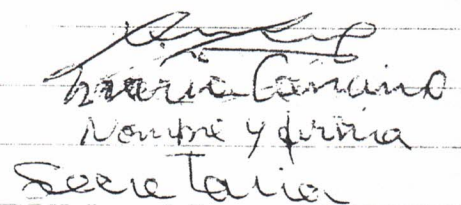 Maria Cancino
Nombre y firma
Secretaria